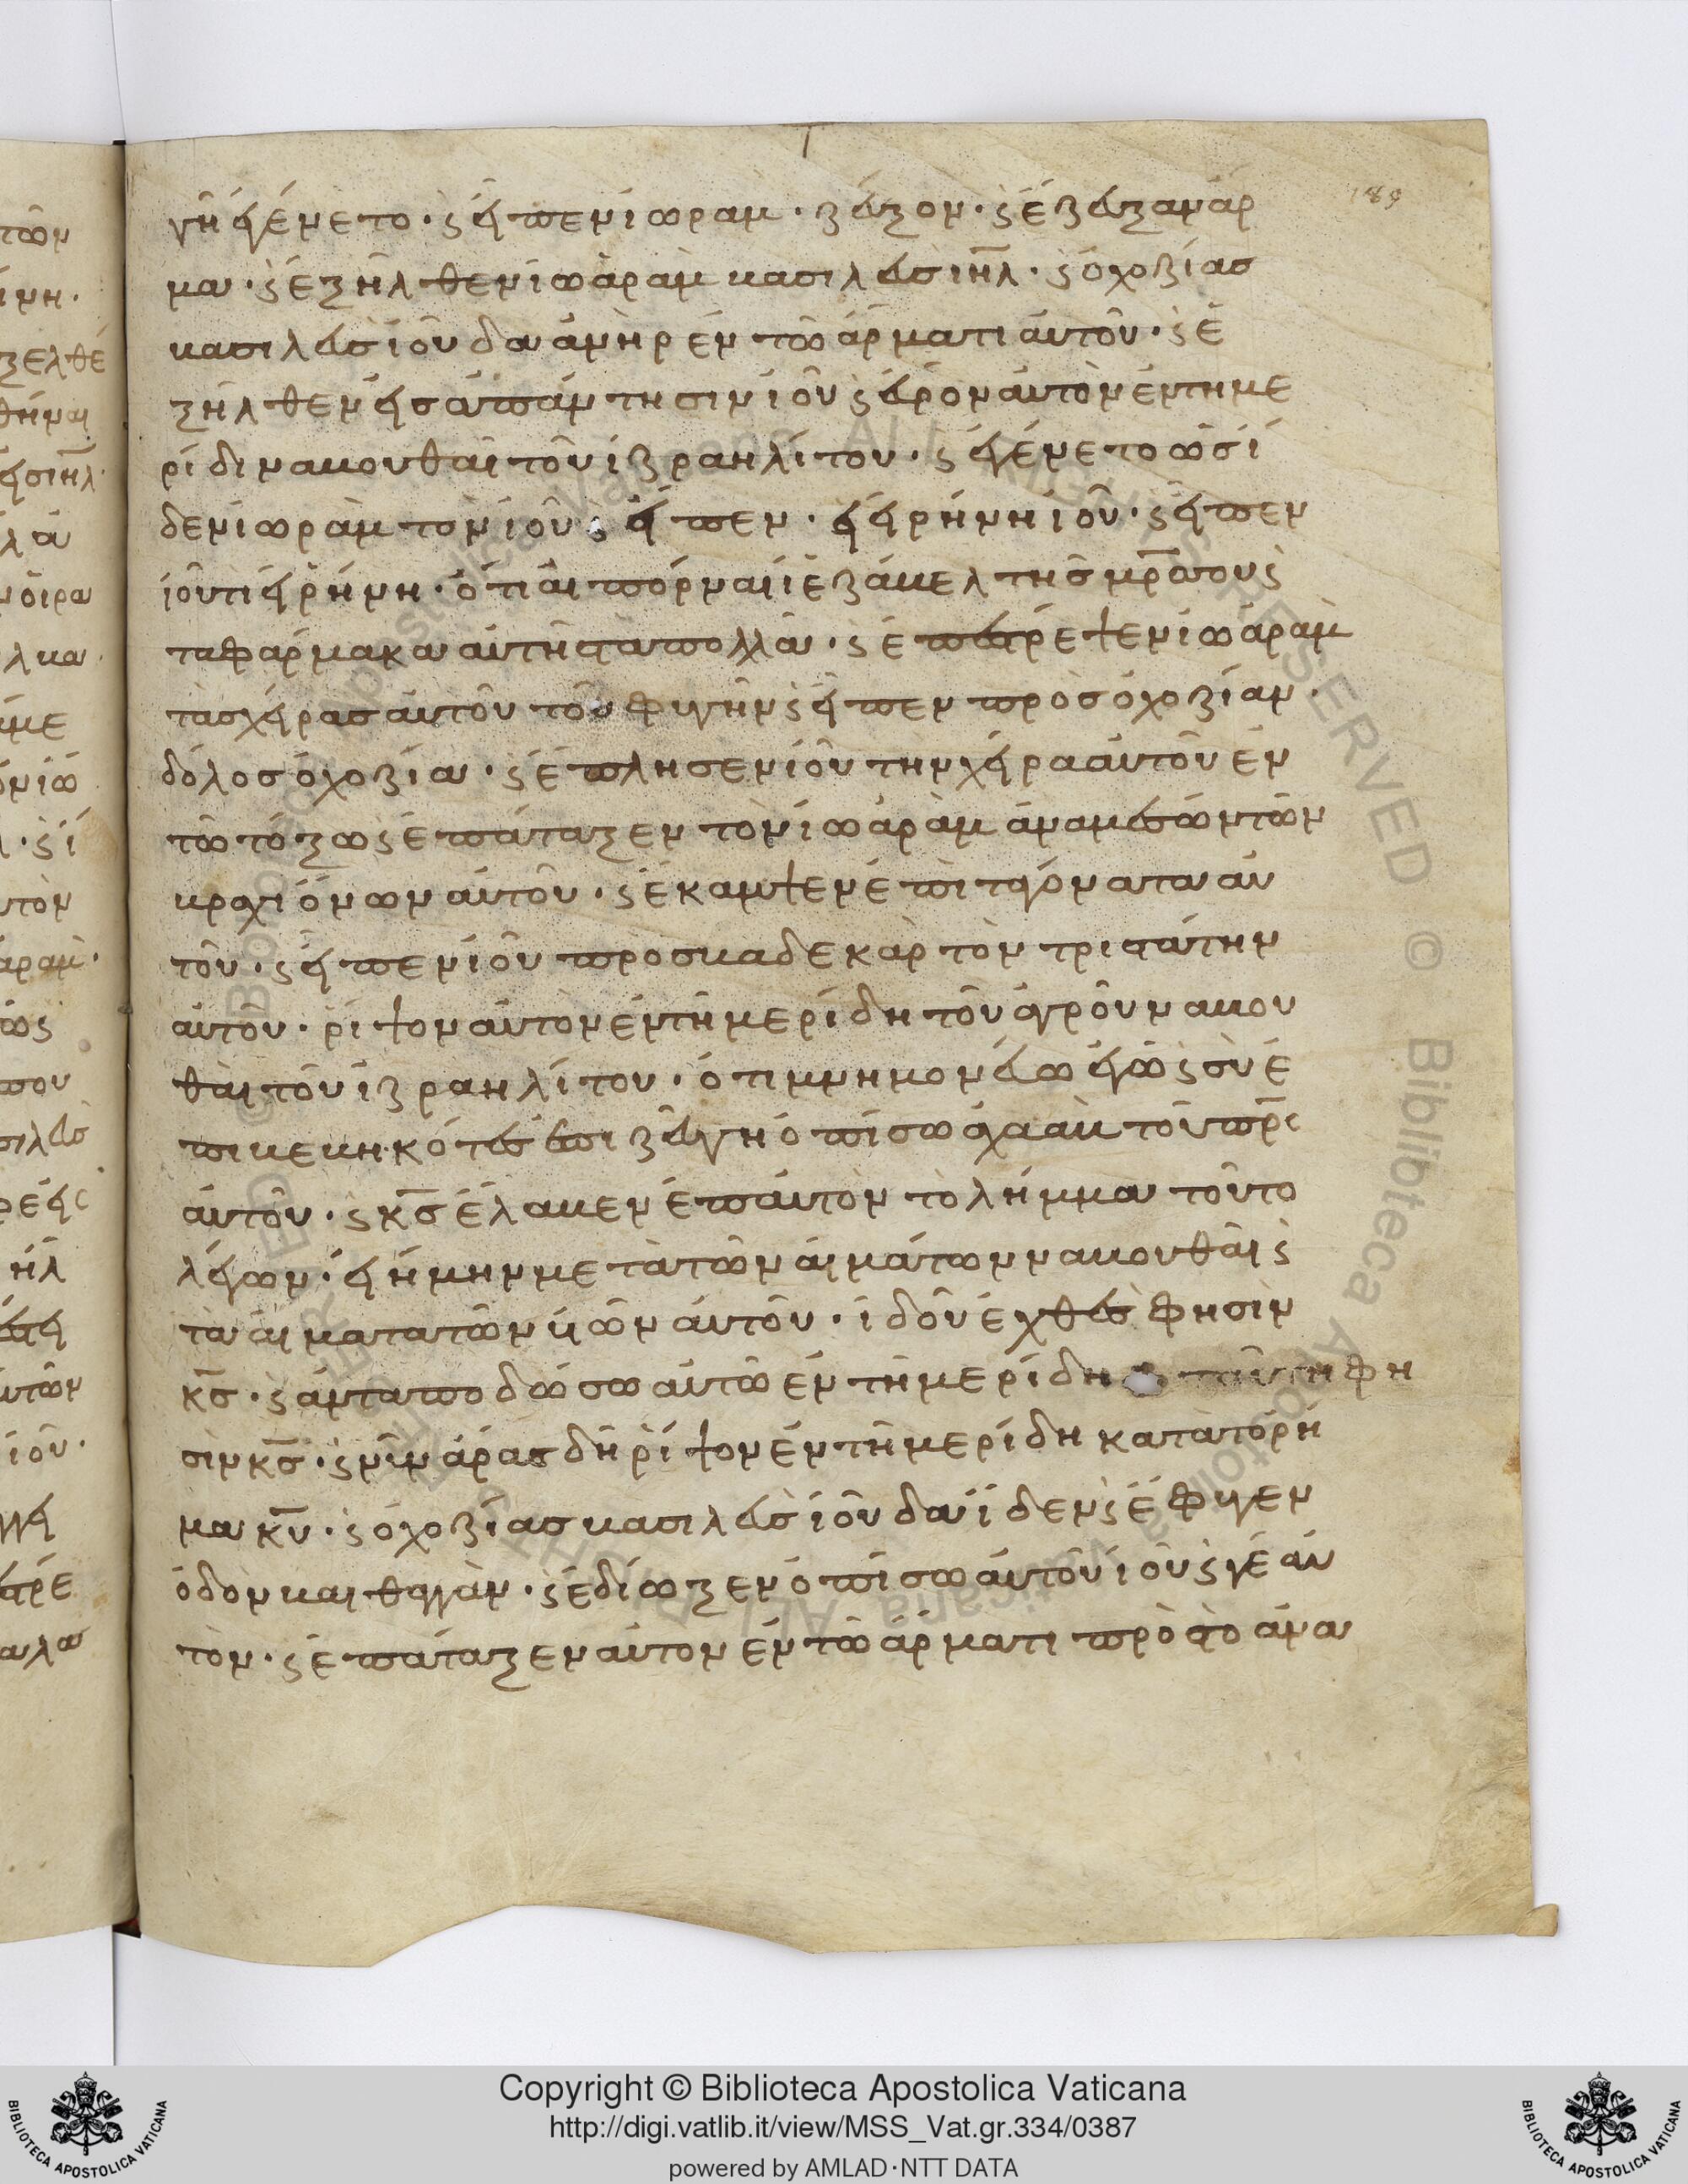 γῆ ἐγένετο · ϛ εἶπεν ἰωραμ · ζεῦξον · ϛ ἔζευξαν ἅρ
μα · ϛ ἐξῆλθεν ἰωἀρὰμ βασιλεὺς ἰηλ · ϛ ὀχοζίας
βασιλεὺς ἰοῦδα ἀνὴρ ἐν τῶ ἅρματι αὐτοῦ · ϛ ἐ
ξῆλθεν εἰς ἀπάντησιν ἰοῦ ϛ εὗρον αὐτὸν ἐν τῆ με
ρίδι ναβουθαὶ τοῦ ἰζραηλίτου · ϛ ἐγένετο ὡς ἴ
δεν ἰωρὰμ τὸν ἰοῦ ϛ εἶπεν · εἰ εἰρήνη ἰοῦ · ϛ εἶπεν
ἰοῦ τί εἰρήνη · ὅτι αἱ πόρναι ἰὲζάβελ τῆς μρς σου ϛ
τα φάρμακα αὐτῆς τὰ πολλά · ϛ ἐπέστρεψεν ἰωάραμ
τὰς χεῖρας αὐτοῦ τοῦ φυγῆν ϛ εἶπεν πρὸς ὀχοζίαν ·
δόλος ὀχοζία · ϛ ἔπλησεν ἰοῦ τὴν χεῖρα αὐτοῦ ἐν
τῶ τόξω ϛ ἐπάταξεν τὸν ἰωἀρὰμ ἀναμέσων τῶν
βραχιόνων αὐτοῦ · ϛ ἔκαμψεν ἐπι τα γόνατα αὐ
τοῦ · ϛ εἶπεν ἰοῦ προς βαδεκὰρ τὸν τριστάτην
αὐτοῦ · ρίψον αὐτὸν ἐν τῆ μερίδη τοῦ ἀγροῦ ναβου
θαὶ τοῦ ἰζραηλίτου · ὅτι μνημονεύω ἐγὼ ϛ σὺ ἐ
πιβεβηκότες ἐπι ζεύγη ὀπίσω ἀχαὰβ τοῦ πρς
αὐτοῦ · ϛ κς ἔλαβεν ἐπ αὐτὸν τὸ λήμμα τοῦτο
λέγων · εἰ ἡ μὴν μετὰ τῶν αἱμάτων ναβουθαὶ ϛ
τὰ αἵματα τῶν ὑιῶν αὐτοῦ · ἰδοῦ ἐχθές φησὶν
κς · ϛ ἀνταποδώσω αὐτῶ ἐν τῆ μερίδη ταύτη φη
σὶν κς · ϛ νῦν ἄρας δὴ ρίψον ἐν τῆ μερίδη κατὰ τὸ ρή
μα κυ · ϛ ὀχοζίας βασιλεὺς ἰοῦδα ἴδεν ϛ ἔφυγεν
ὁδὸν βαιθαγὰν · ϛ ἐδίωξεν ὀπίσω αὐτοῦ ἰοῦ ϛ γε αὐ
τὸν · ϛ ἐπάταξεν αὐτον ἐν τῶ ἅρματι πρὸς τὸ ἀνα
189
Copyright © Biblioteca Apostolica Vaticana
http://digi.vatlib.it/view/MSS_Vat.gr.334/0387
powered by AMLAD·NTT DATA
BIBLIOTECA APOSTOLICA VATICANA
BIBLIOTECA APOSTOLICA VATICANA